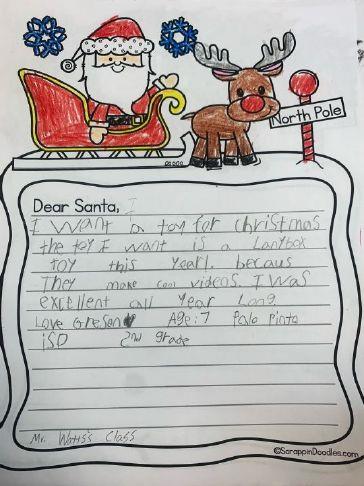 North Pole
Dear Santa, I
I want a toy for christmas
the toy I want is a Lanybox
toy this year!. becaus
They make cool videos. I was
excellent all year Long
Love Greson Age: 7 Palo Pinto
iSD 2nd grade
Mr. Watts's Class
©ScrappinDoodles.com